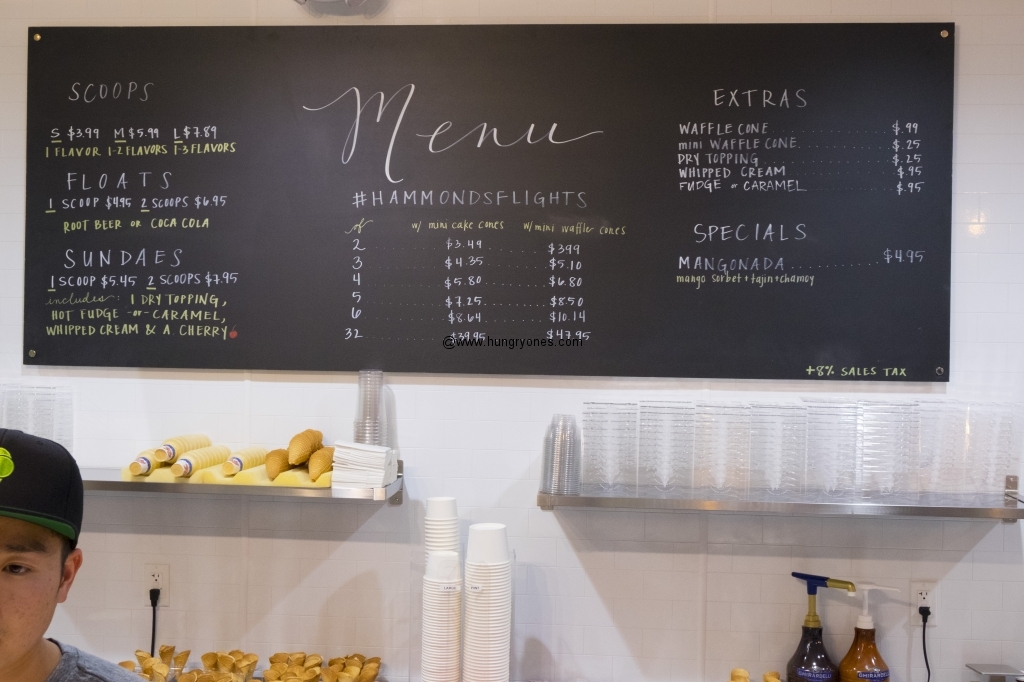 SCOOPS
S $3.99 M $5.99 L $7.89
1 FLAVOR 1-2 FLAVORS 1-3 FLAVORS
FLOATS
1 SCOOP $4.95 2 SCOOPS $6.95
ROOT BEER OR COCA COLA
SUNDAES
1 SCOOP $5.45 2 SCOOPS $7.95
includes: 1 DRY TOPPING,
HOT FUDGE -or- CARAMEL,
WHIPPED CREAM & A CHERRY
Menu
#HAMMONDSFLIGHTS
of w/ mini cake cones w/ mini waffle cones
2 $3.49 $3.99
3 $4.35 $5.10
4 $5.80 $6.80
5 $7.25 $8.50
6 $8.64 $10.14
32 $39.95 $47.95
@www.hungryones.com
EXTRAS
WAFFLE CONE $.99
mini WAFFLE CONE $.25
DRY TOPPING $.25
WHIPPED CREAM $.95
FUDGE or CARAMEL $.95
SPECIALS
MANGONADA $4.95
mango sorbet + tajin + chamoy
+8% SALES TAX